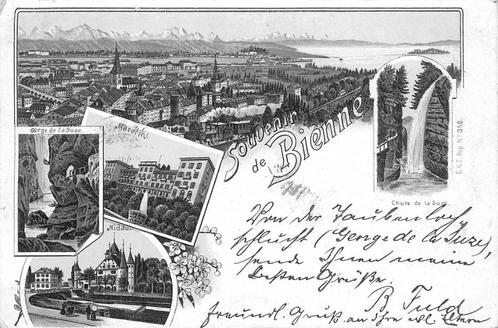 Souvenir
de Bienne
Gorge de la Suze.
Macolin
Nidau
Chute de la Suze.
Von der Taubenloch
schlucht (Gorge de la Suze)
sende Ihnen meine
besten Grüße.
B. Fuld
freundl. Gruß an Ihre